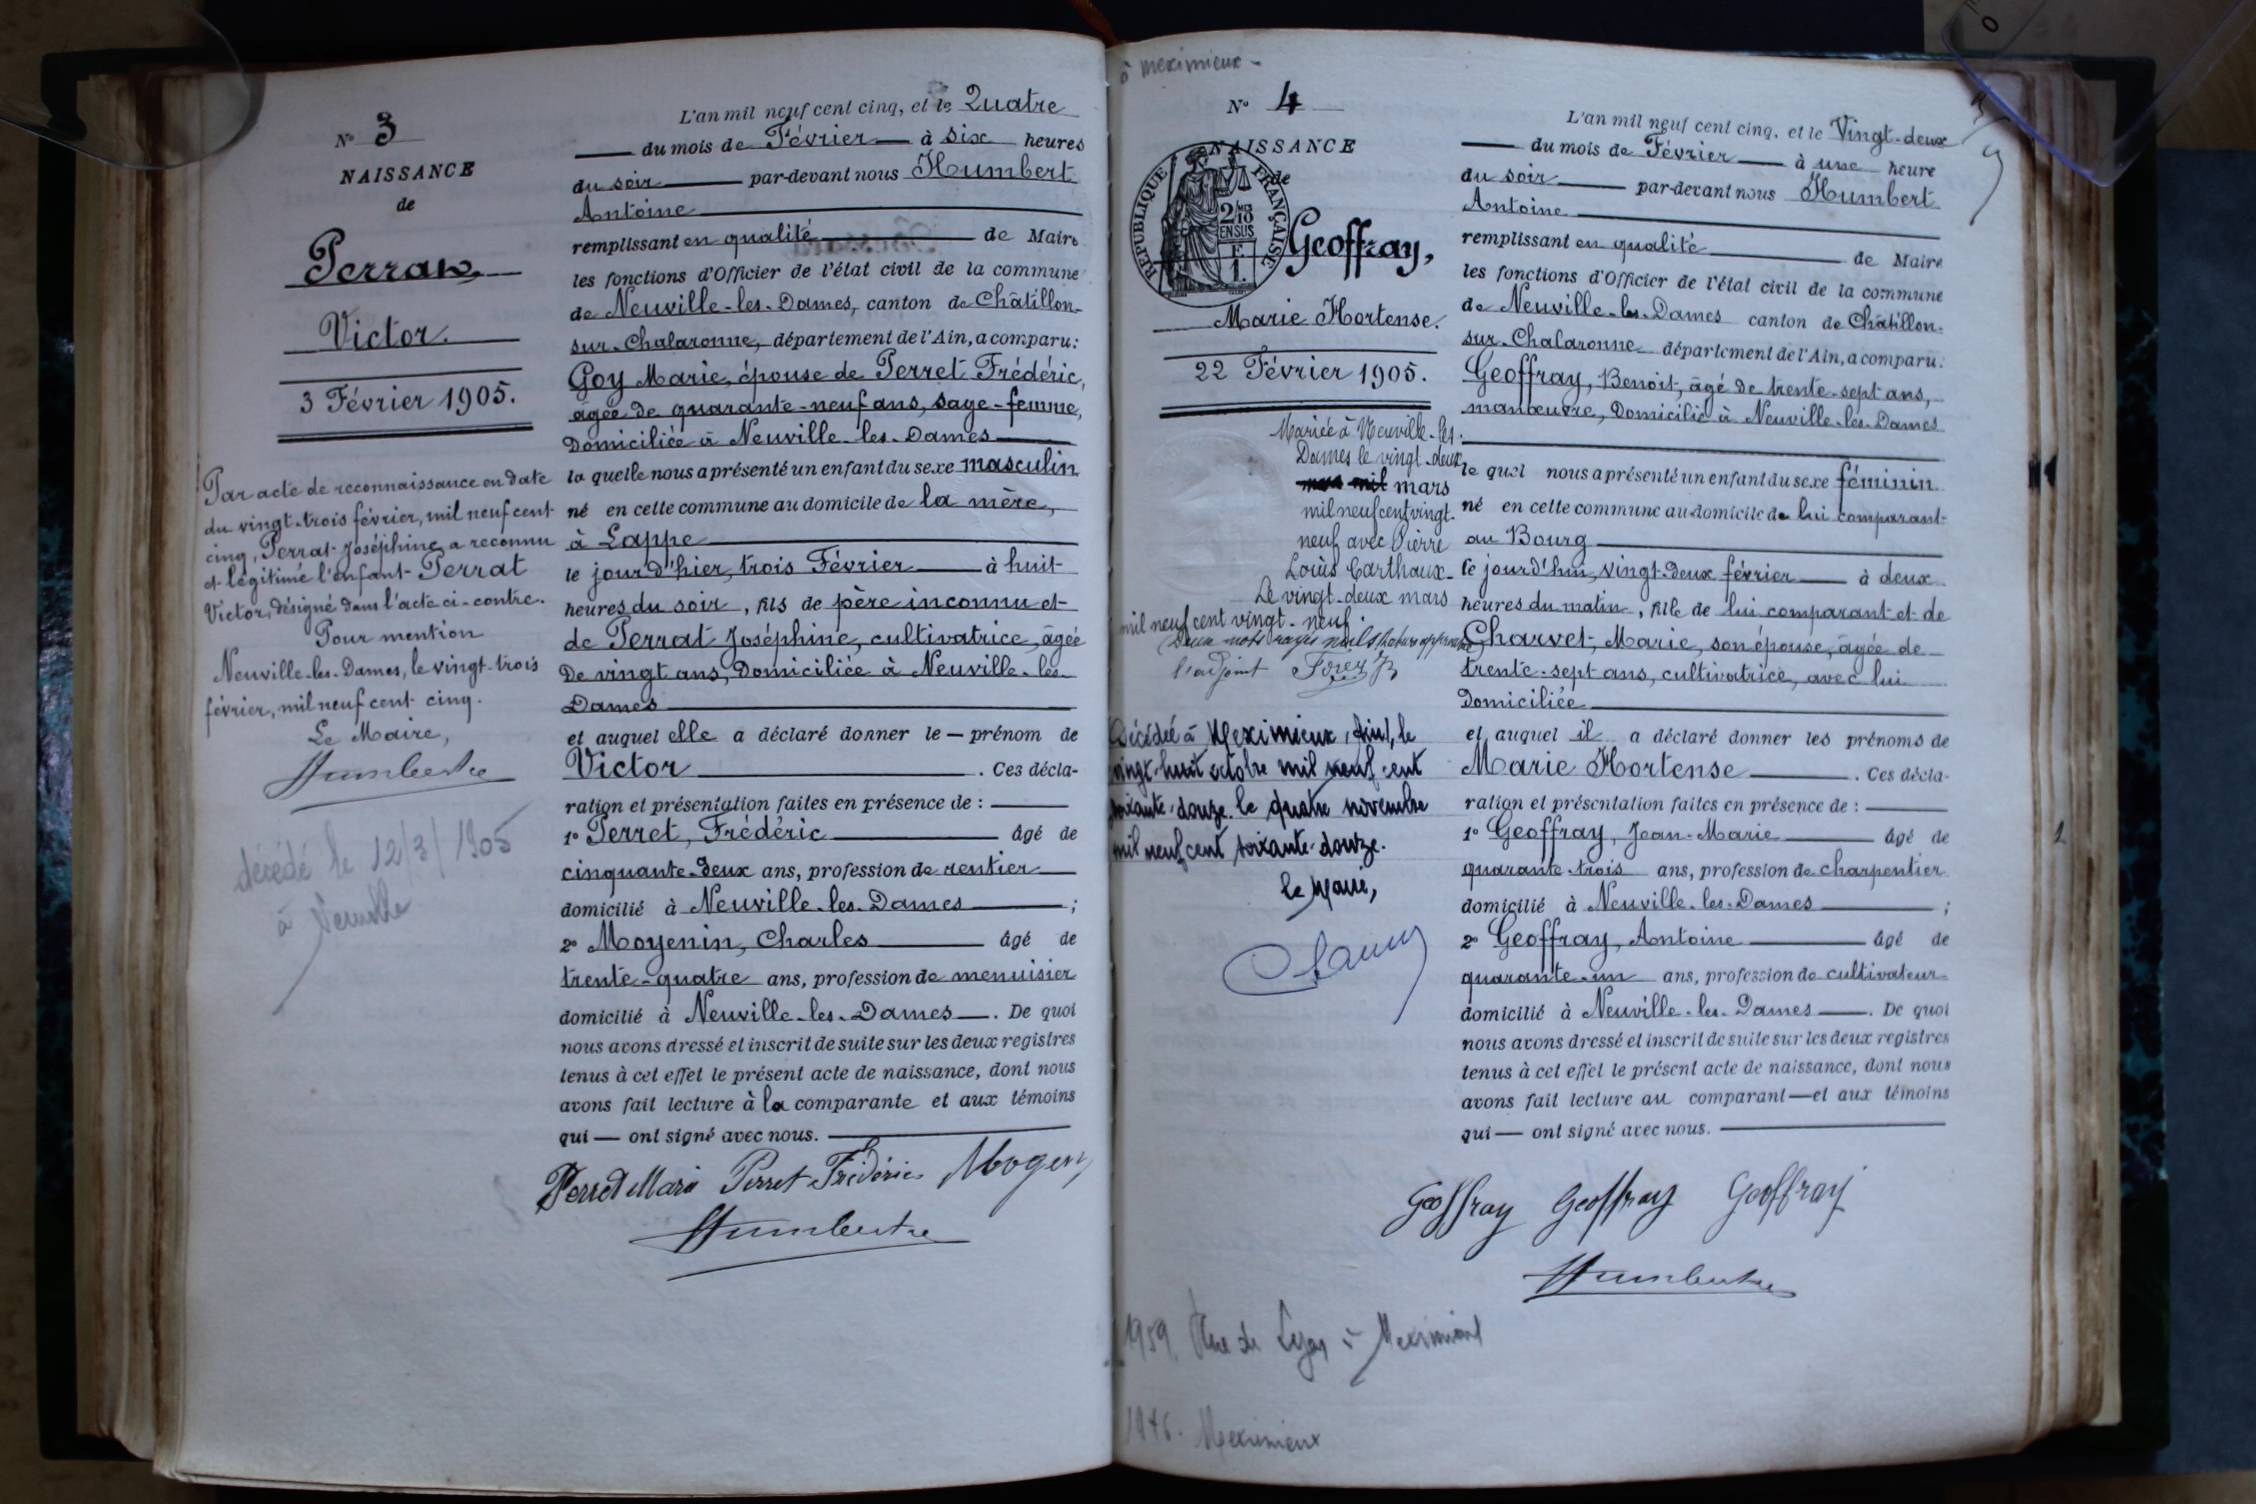 N° 3
NAISSANCE
de
Perrat
Victor.
3 Février 1905.
Par acte de reconnaissance en date
du vingt-trois février, mil neuf cent
cinq, Perrat Joséphine a reconnu
et légitimé l'enfant Perrat
Victor, désigné dans l'acte ci-contre.
Pour mention
Neuville-les-Dames, le vingt-trois
février, mil neuf cent cinq.
Le Maire,
décédé le 12/3/1905
à Neuville
L'an mil neuf cent cinq, et le Quatre
du mois de Février à six heures
du soir par-devant nous Humbert
Antoine
remplissant en qualité de Maire
les fonctions d'Officier de l'état civil de la commune
de Neuville-les-Dames, canton de Châtillon-
sur-Chalaronne, département de l'Ain, a comparu:
Goy Marie, épouse de Perret Frédéric,
âgée de quarante-neuf ans, sage-femme,
Domiciliée à Neuville-les-Dames
la quelle nous a présenté un enfant du sexe masculin
né en cette commune au domicile de la mère,
à Lappe
le jourd'hier, trois Février à huit
heures du soir, fils de père inconnu et
de Perrat Joséphine, cultivatrice, âgée
De vingt ans, Domiciliée à Neuville-les-
Dames
et auquel elle a déclaré donner le — prénom de
Victor . Ces décla-
ration et présentation faites en présence de :
1° Perret, Frédéric âgé de
cinquante-deux ans, profession de rentier
domicilié à Neuville-les-Dames ;
2° Moyenin, Charles âgé de
trente-quatre ans, profession de menuisier
domicilié à Neuville-les-Dames . De quoi
nous avons dressé et inscrit de suite sur les deux registres
tenus à cet effet le présent acte de naissance, dont nous
avons fait lecture à la comparante et aux témoins
qui — ont signé avec nous.
Perret Marie Perret Frédéric
à Meximieux -
N° 4
NAISSANCE
de
REPUBLIQUE FRANÇAISE
2/10
EN SUS
1.
Geoffray,
Marie Hortense.
22 Février 1905.
Mariée à Neuville-les-
Dames le vingt-deux
mars
mil neuf cent vingt-
neuf avec Pierre
Louis Carthaux-
Le vingt-deux mars
mil neuf cent vingt-neuf.
l'adjoint
Décédée à Meximieux, (Ain), le
vingt-huit octobre mil neuf cent
soixante-douze. le quatre novembre
mil neuf cent soixante-douze.
le Maire,
L'an mil neuf cent cinq, et le Vingt-deux
du mois de Février à une heure
du soir par-devant nous Humbert
Antoine
remplissant en qualité de Maire
les fonctions d'Officier de l'état civil de la commune
de Neuville-les-Dames canton de Châtillon-
sur-Chalaronne département de l'Ain, a comparu:
Geoffray, Benoit, âgé de trente-sept ans,
manœuvre, Domicilié à Neuville-les-Dames
le quel nous a présenté un enfant du sexe féminin
né en cette commune au domicile de lui comparant
au Bourg
le jourd'hui, vingt-deux février à deux
heures du matin, fille de lui comparant et de
Charvet, Marie, son épouse, âgée de
trente-sept ans, cultivatrice, avec lui
Domiciliée
et auquel il a déclaré donner les prénoms de
Marie Hortense . Ces décla-
ration et présentation faites en présence de :
1° Geoffray, Jean-Marie âgé de
quarante-trois ans, profession de charpentier
domicilié à Neuville-les-Dames ;
2° Geoffray, Antoine âgé de
quarante-un ans, profession de cultivateur
domicilié à Neuville-les-Dames . De quoi
nous avons dressé et inscrit de suite sur les deux registres
tenus à cet effet le présent acte de naissance, dont nous
avons fait lecture au comparant — et aux témoins
qui — ont signé avec nous.
Geoffray Geoffray Geoffray
1959. Rue de à
1946. Meximieux